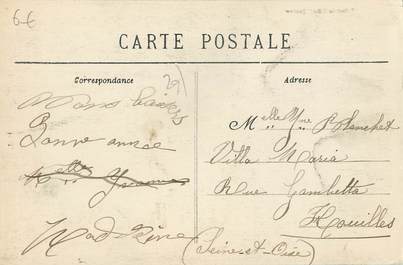 6€
CARTE POSTALE
Correspondance
Adresse
Bons baisers
Bonne année
Madeleine
Melle Yne Blanchet
Villa Maria
Rue Gambetta
Houilles
(Seine-et-Oise)